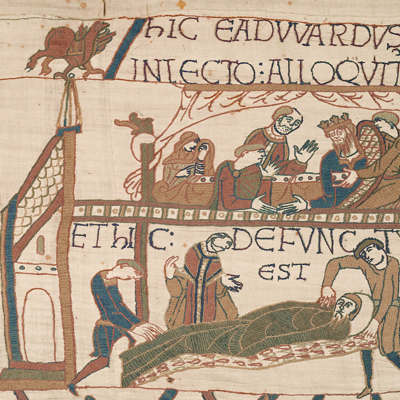 hIC EADVVARDVS
IN LECTO : ALLOQVIT
ET hIC : DEFVNCT
EST